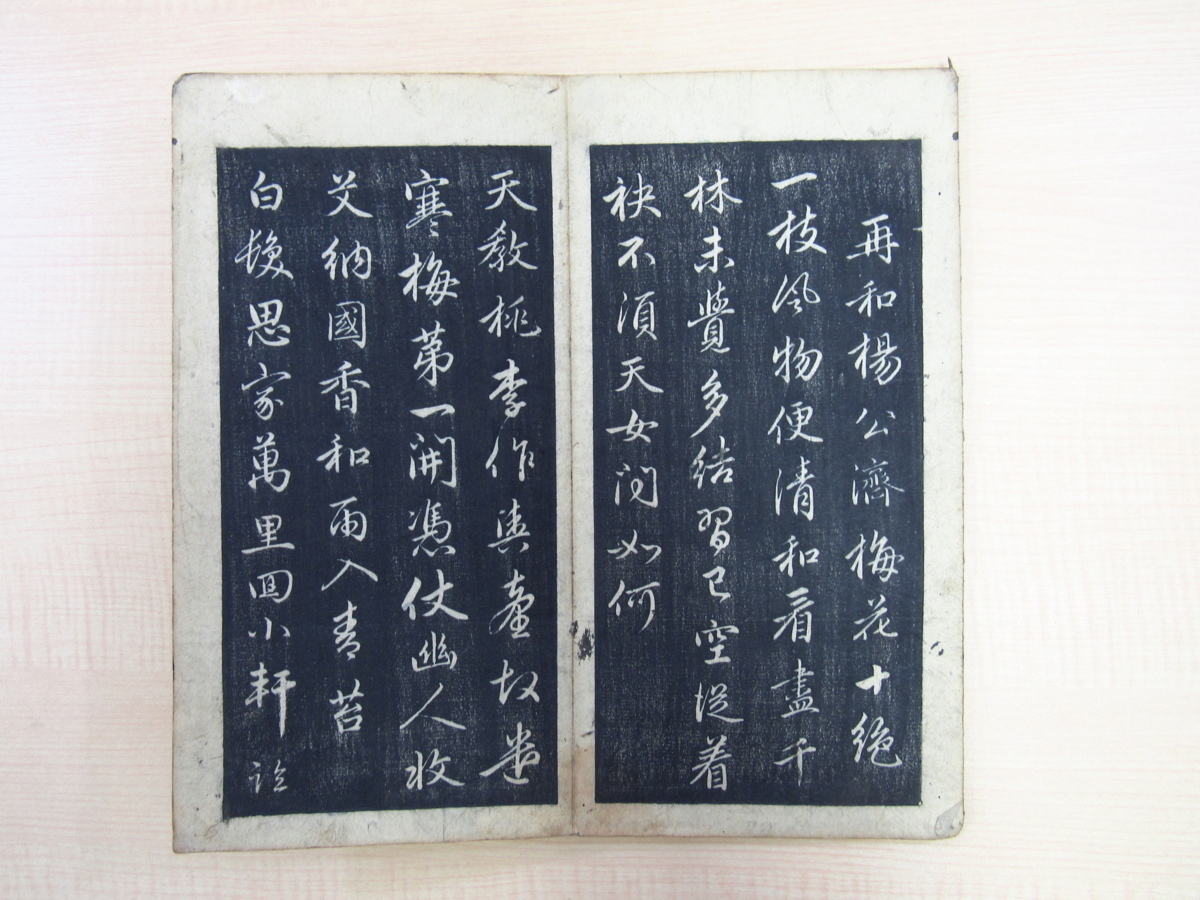 再和楊公濟梅花十絶
一枝風物便清和看盡千
林未覺多結習已空從着
袂不須天女問如何
天教桃李作輿臺故遣
寒梅第一開憑仗幽人收
艾納國香和雨入青苔
白髮思家萬里回小軒臨